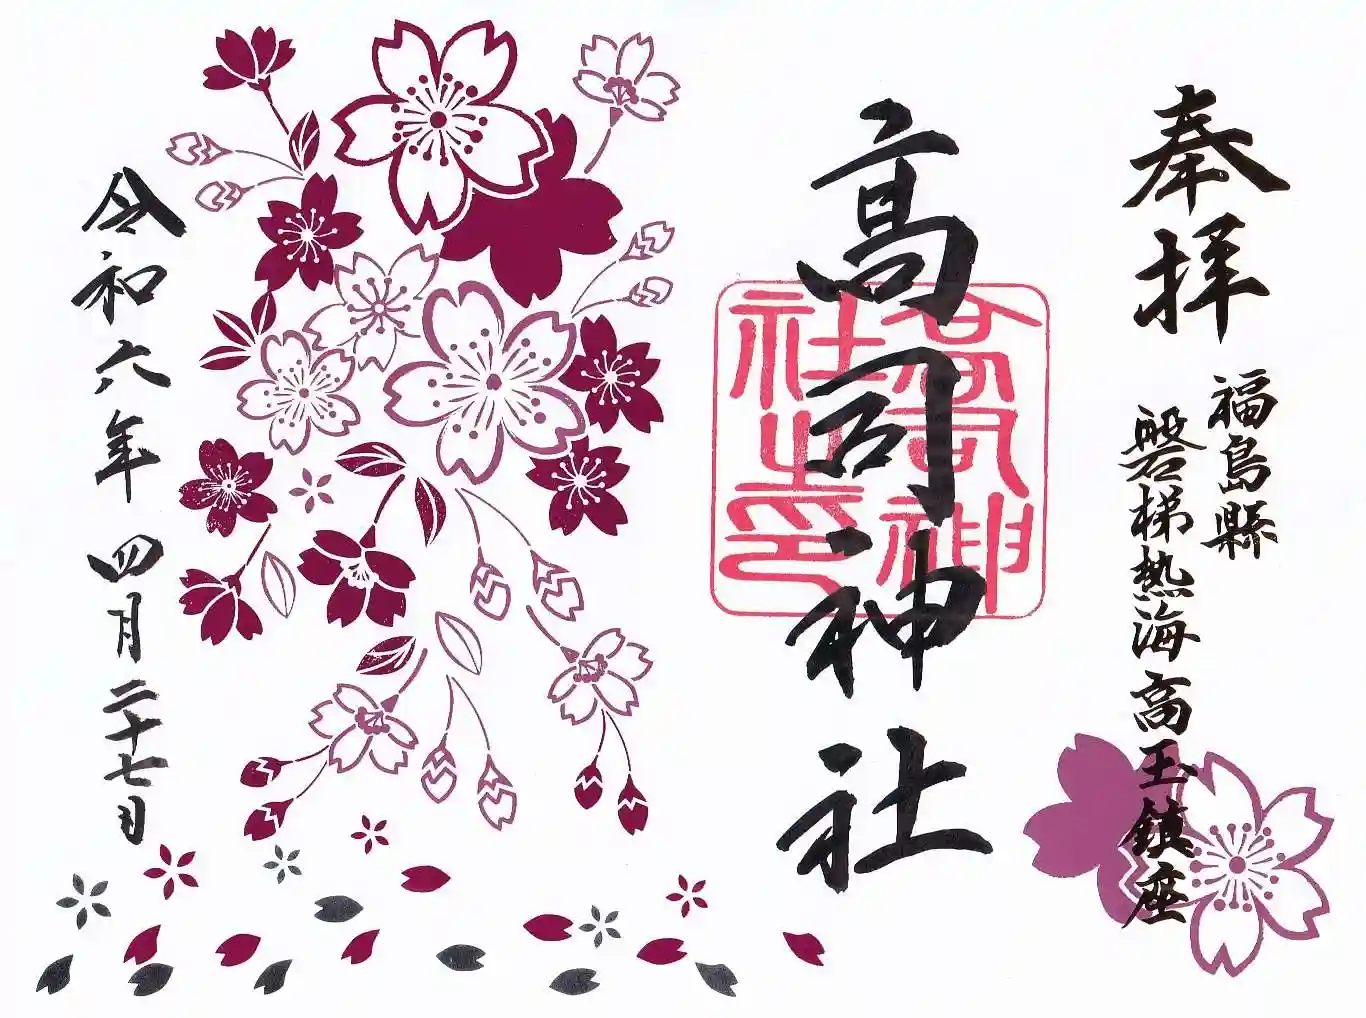 奉拝
福島縣
磐梯熱海高玉鎮座
高司神社
高司神
社之印
令和六年四月二十七日